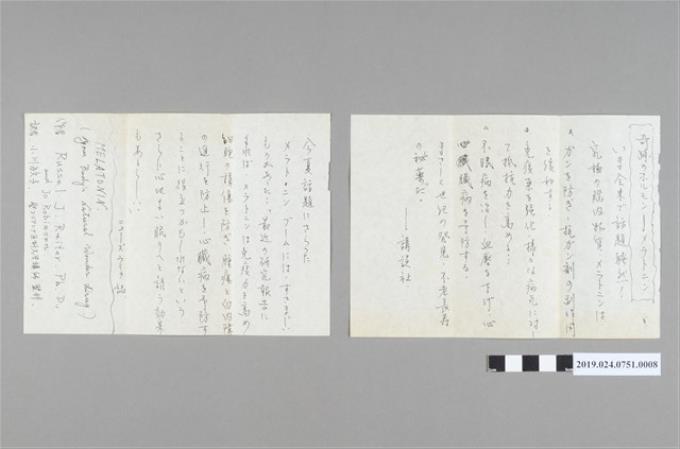 奇跡のホルモン―メラトニン
いま全米で話題騒然!
究極の脳内物質メラトニンは
ガンを防ぎ、抗ガン剤の副作用
を緩和する
免疫系を強化、様々な病気に対し
て抵抗力を高める…
不眠病を治し、血圧を下げ、心
臓病を予防する。
まさしく世紀の発見、不老長寿
の秘薬だ。
――講談社
今夏話題にさらった
メラトニンブームにはすさまじい
ものがあった…最近の研究報告に
よれば メラトニンは免疫力を高め
細胞の損傷を防ぎ、腫瘍と白内障
の進行を防止し、心臓病を予防す
ることに役立つかもしれないという
さらに心地よい眠りへと誘う効果
もあるらしい…
ニューズウィーク誌
MELATONIN
(Your Body's Natural Wonder Drug)
著 Russel J. Reiter, Ph.D.
and Jo Robinson
訳 小川敏子
2019.024.0751.0008